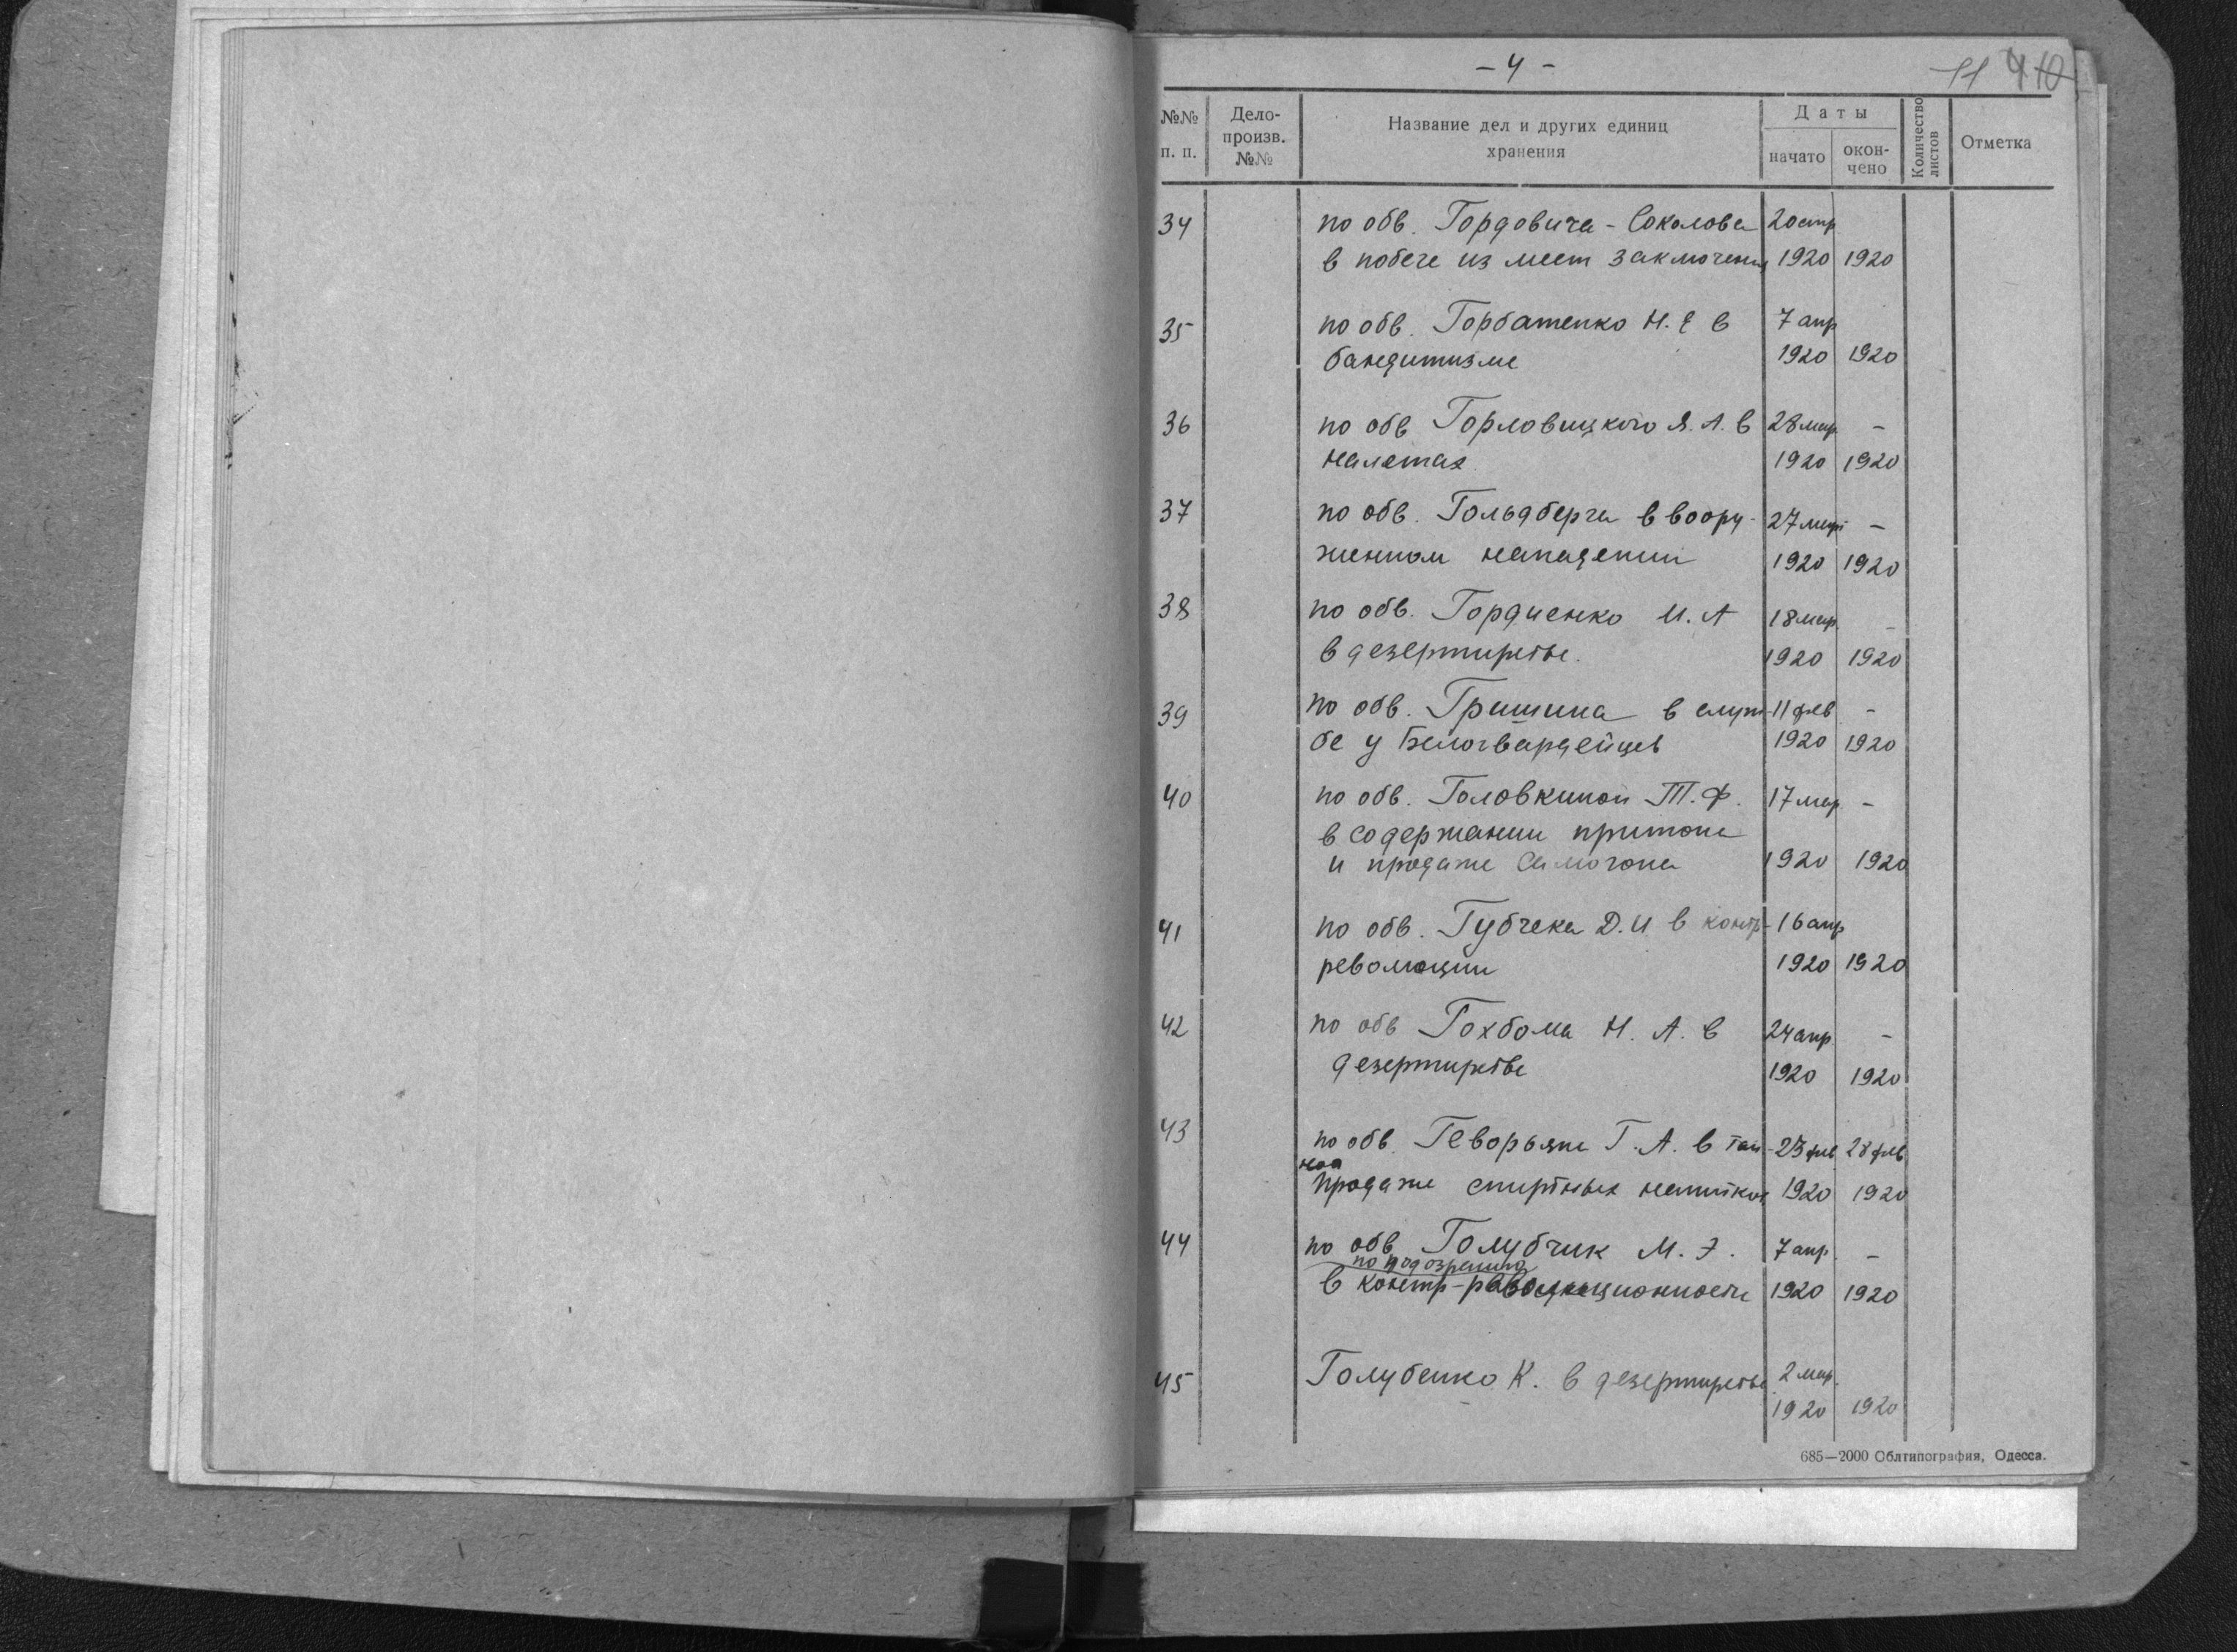 - 4 -
11 410
№№ п. п.
Дело-произв. №№
Название дел и других единиц хранения
Даты
начато
окон-чено
Количество листов
Отметка
34 по обв. Гордовича - Соколова 20 апр
в побеге из мест заключения 1920 1920
35 по обв. Горбатенко Н. Е в 7 апр
бандитизме 1920 1920
36 по обв Горловицкого Я. Л. в 28 мар -
налетах 1920 1920
37 по обв. Гольдберга в воору- 27 мар -
женном нападении 1920 1920
38 по обв. Гордиенко И. А 18 мар. -
в дезертирстве. 1920 1920
39 по обв. Гришина в служ- 11 фев -
бе у Белогвардейцев 1920 1920
40 по обв. Головкиной Т. Ф. 17 мар. -
в содержании притона
и продаже самогона 1920 1920
41 по обв. Губчека Д. И в контр- 16 апр
революции 1920 1920
42 по обв Гохбома Н. А. в 24 апр. -
дезертирстве 1920 1920
43 по обв. Геворьяна Г. А. в тай- 23 фев 28 фев
ной
продаже спиртных напитков 1920 1920
44 по обв. Голубчик М. Э. 7 апр. -
по подозрению
в контр-революционности 1920 1920
45 Голубенко К. в дезертирстве 2 мар.
1920 1920
685—2000 Облтипография, Одесса.